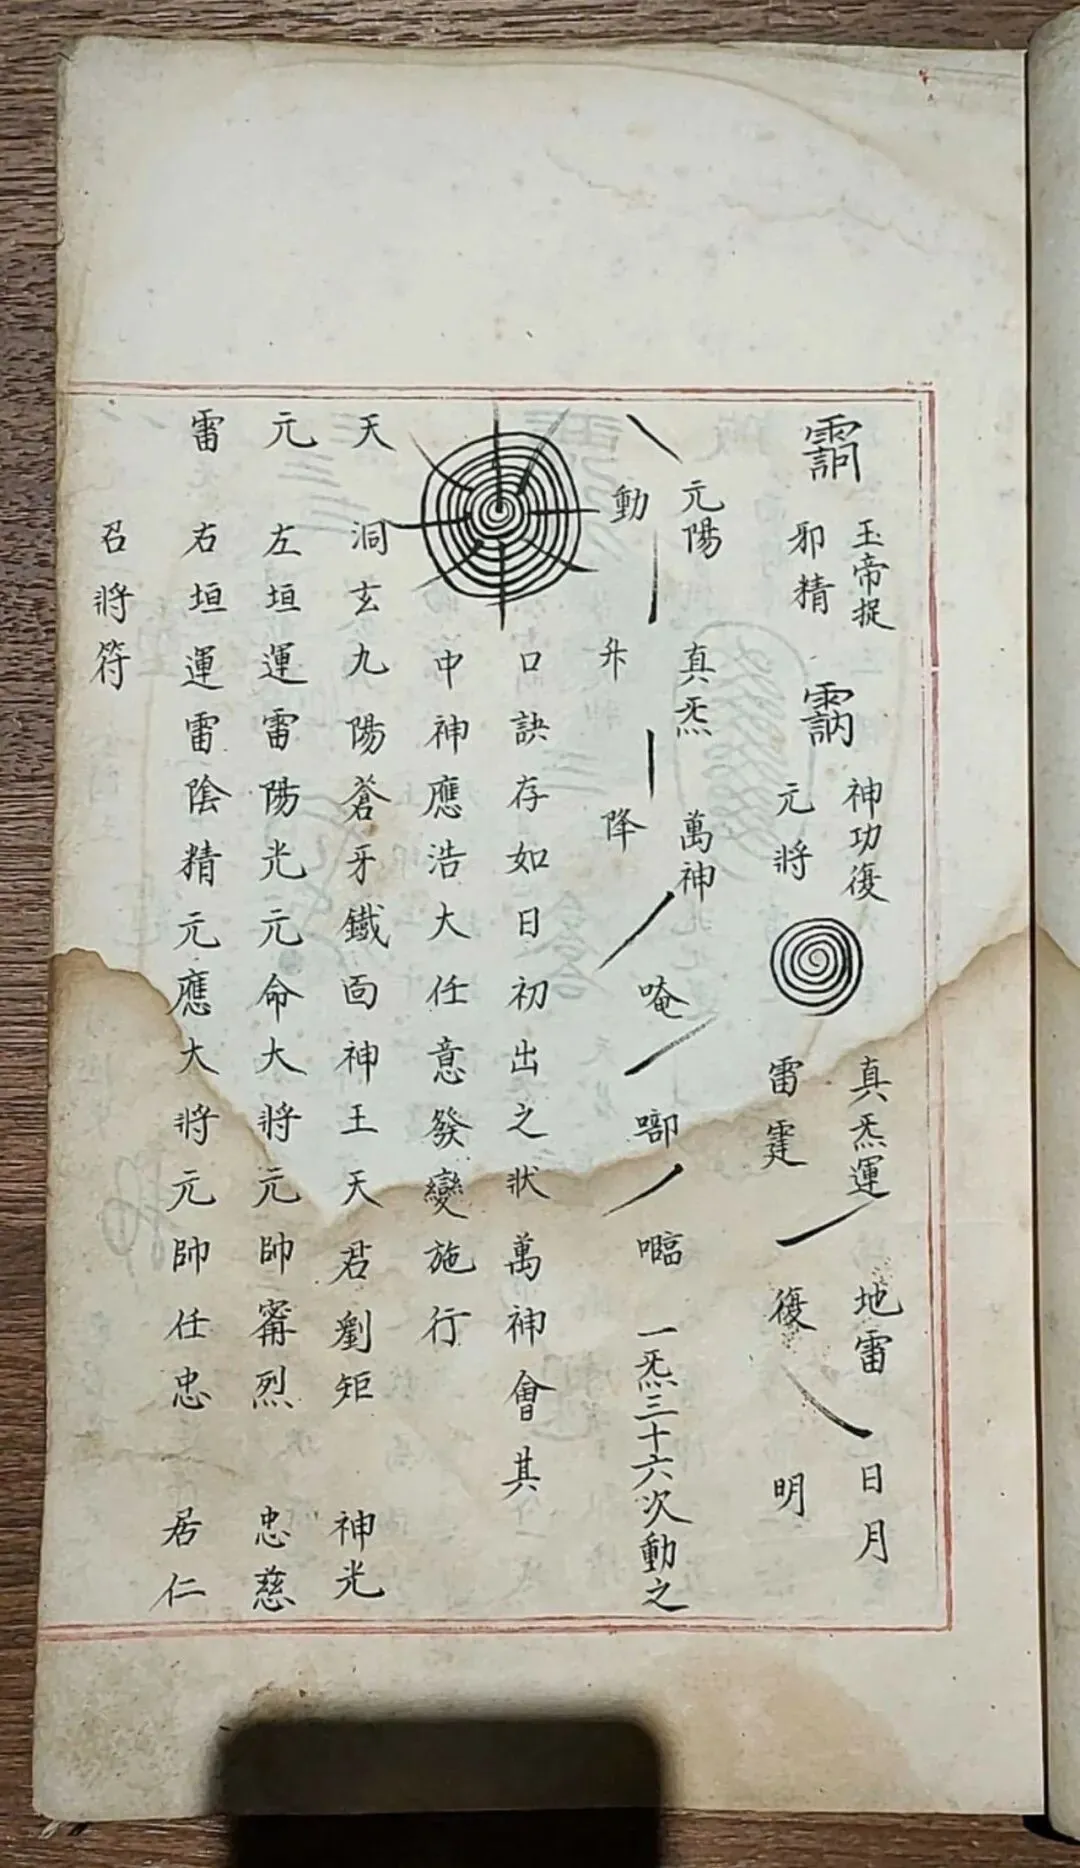 玉帝捉
邪精
神功復
元將
真炁運
雷霆
地雷
復
日月
明
元陽
動
真炁
升
萬神
降
唵
啣
𡄴
一炁三十六次動之
口訣存如日初出之狀萬神會其
中神應浩大任意發變施行
天洞玄九陽蒼牙鐵面神王天君劉矩 神光
元左垣運雷陽光元命大將元帥甯烈 忠慈
雷右垣運雷陰精元應大將元帥任忠 居仁
召將符